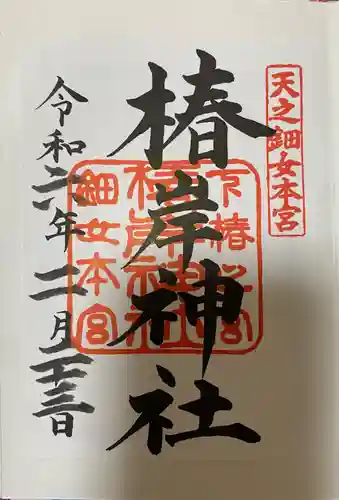 天之鈿女本宮
椿岸神社
下椿之宮
椿岸神社
鈿女本宮
令和六年二月二十三日